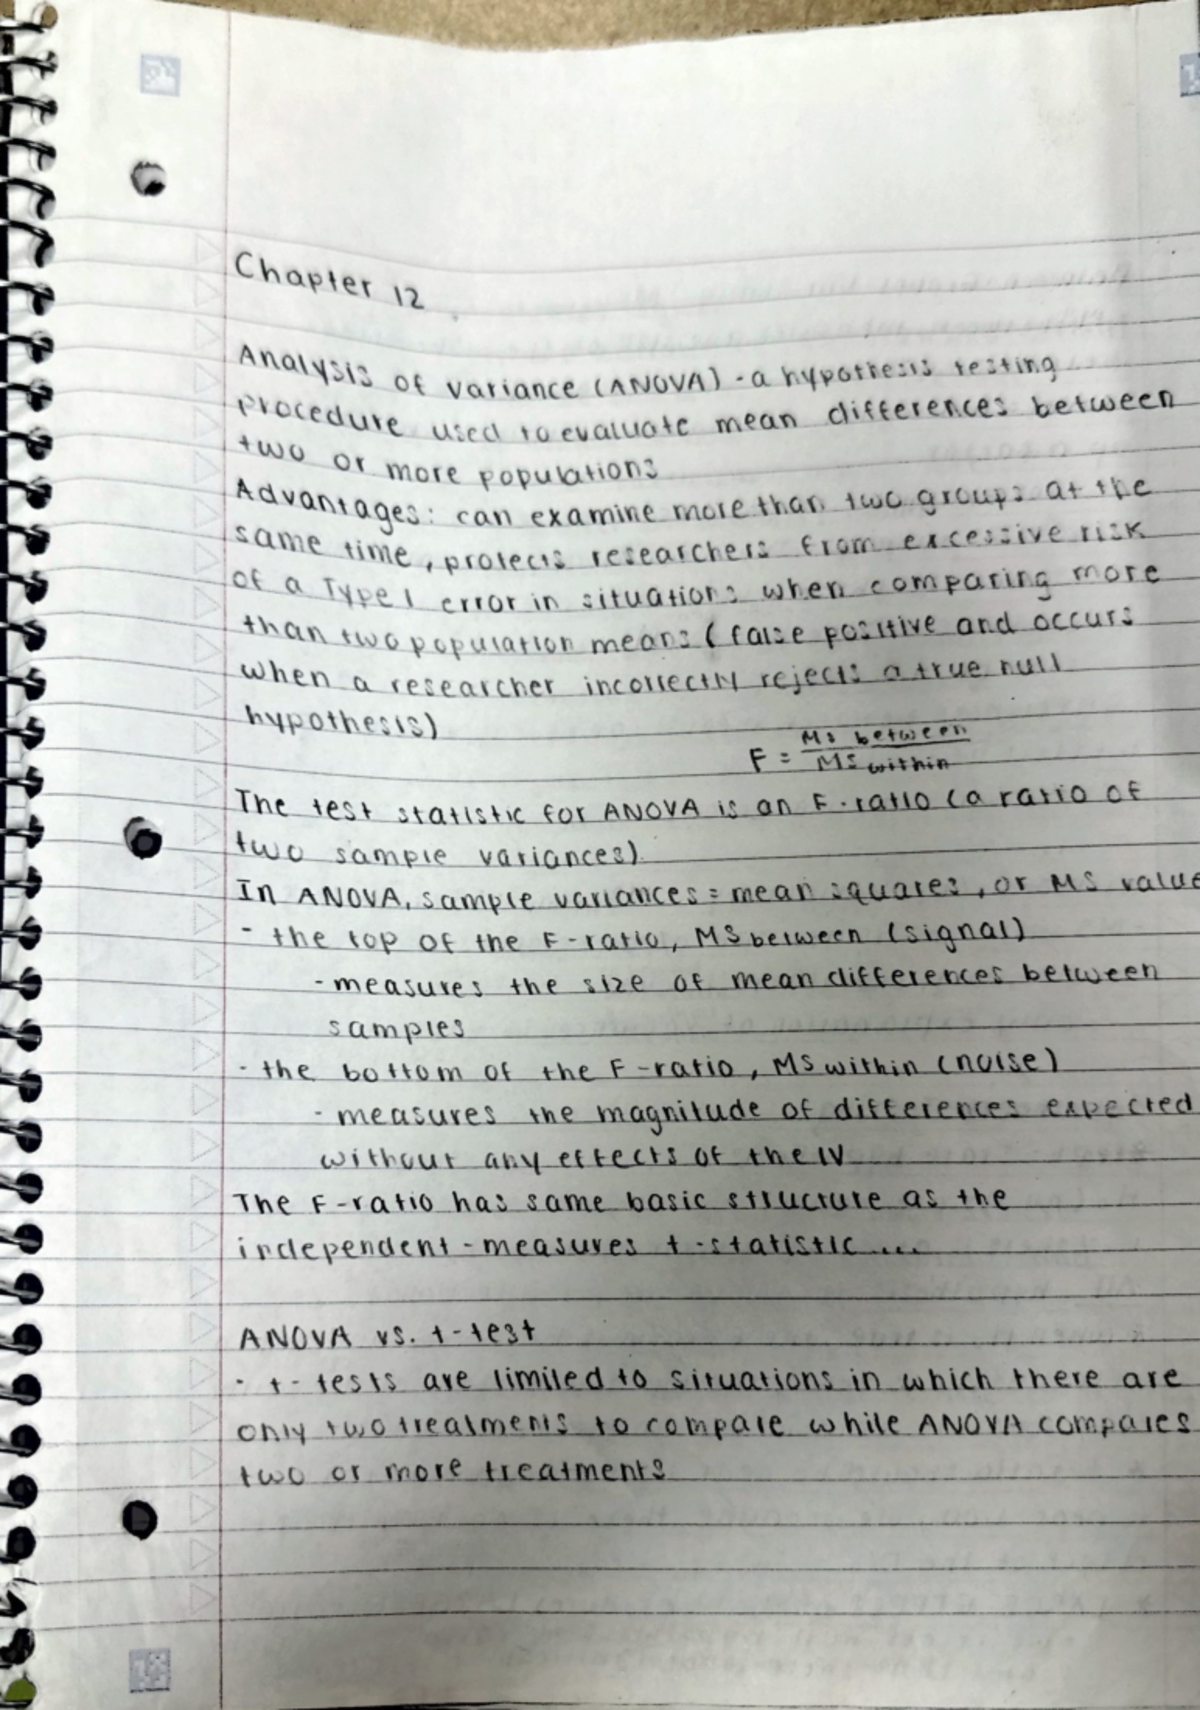 Chapter 12
Analysis of variance (ANOVA) - a hypothesis testing
procedure used to evaluate mean differences between
two or more populations
Advantages: can examine more than two groups at the
same time, protects researchers from excessive risk
of a Type 1 error in situations when comparing more
than two population means (false positive and occurs
when a researcher incorrectly rejects a true null
hypothesis)
F = MS between / MS within
The test statistic for ANOVA is an F-ratio (a ratio of
two sample variances)
In ANOVA, sample variances = mean squares, or MS value
- the top of the F-ratio, MS between (signal)
- measures the size of mean differences between
samples
- the bottom of the F-ratio, MS within (noise)
- measures the magnitude of differences expected
without any effects of the IV
The F-ratio has same basic structure as the
independent-measures t-statistic...
ANOVA vs. t-test
- t-tests are limited to situations in which there are
only two treatments to compare while ANOVA compares
two or more treatments